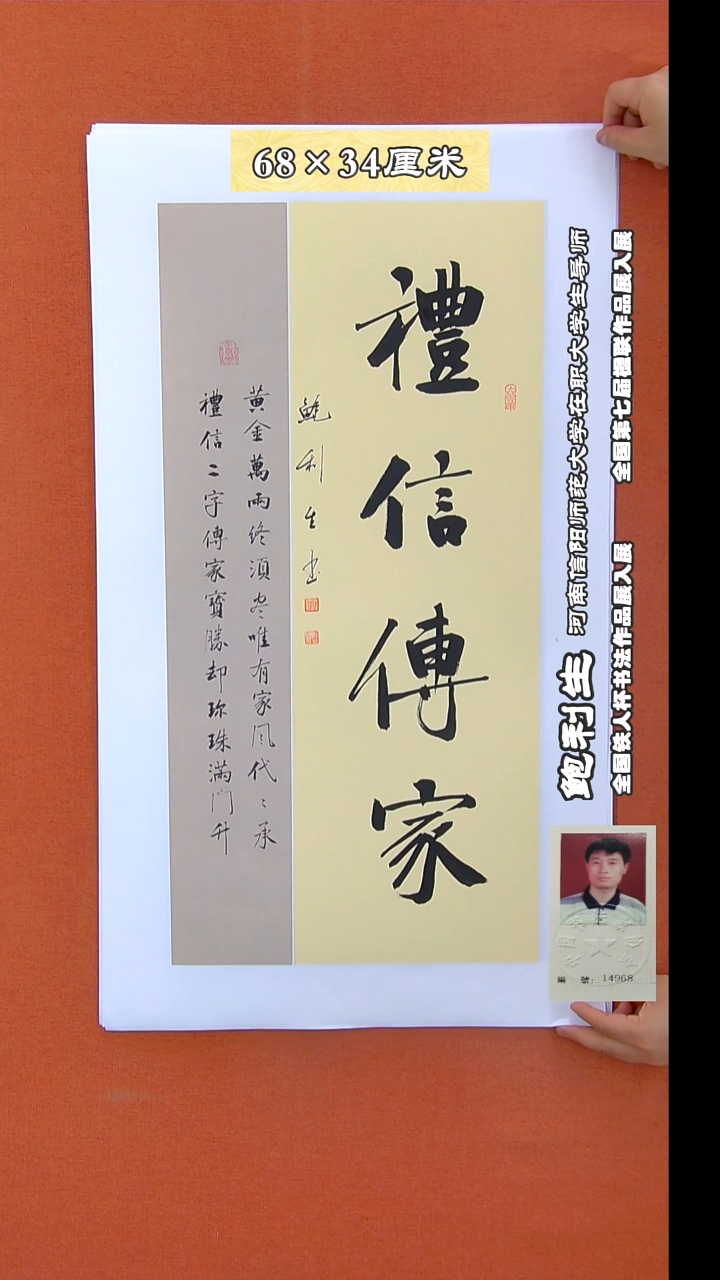 68×34厘米
禮信傳家
鮑利生書
黃金萬兩終須尽唯有家风代〻承
禮信二字傳家寶勝却珍珠满门升
鲍利生 河南信阳师范大学在职大学生导师
全国铁人杯书法作品展入展 全国第七届楹联作品展入展
編 號：14968